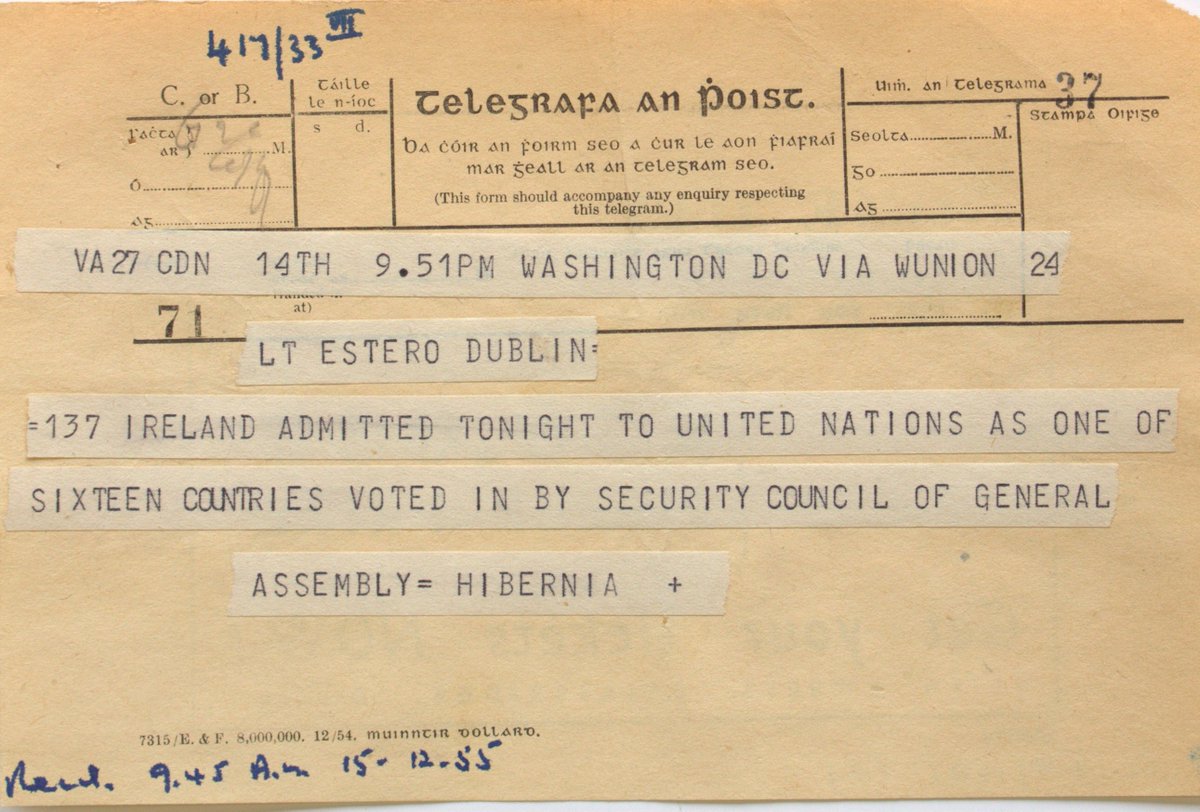 417/33 VII
C. or B.
Táille
le n-íoc
s d.
Telegrafa an Ṗoist.
Ba ċóir an ḟoirm seo a ċur le aon ḟiafraí
mar ġeall ar an telegram seo.
(This form should accompany any enquiry respecting
this telegram.)
Uiṁ. an Telegrama 37
Stampa Oifige
Faċta
ar } M.
Ó
Ag
Seolta M.
Go
Ag
VA27 CDN 14TH 9.51PM WASHINGTON DC VIA WUNION 24
at)
71
LT ESTERO DUBLIN=
=137 IRELAND ADMITTED TONIGHT TO UNITED NATIONS AS ONE OF
SIXTEEN COUNTRIES VOTED IN BY SECURITY COUNCIL OF GENERAL
ASSEMBLY= HIBERNIA +
7315/E. & F. 8,000,000. 12/54. muinntir dollard.
Recd. 9.45 A.m 15-12-55